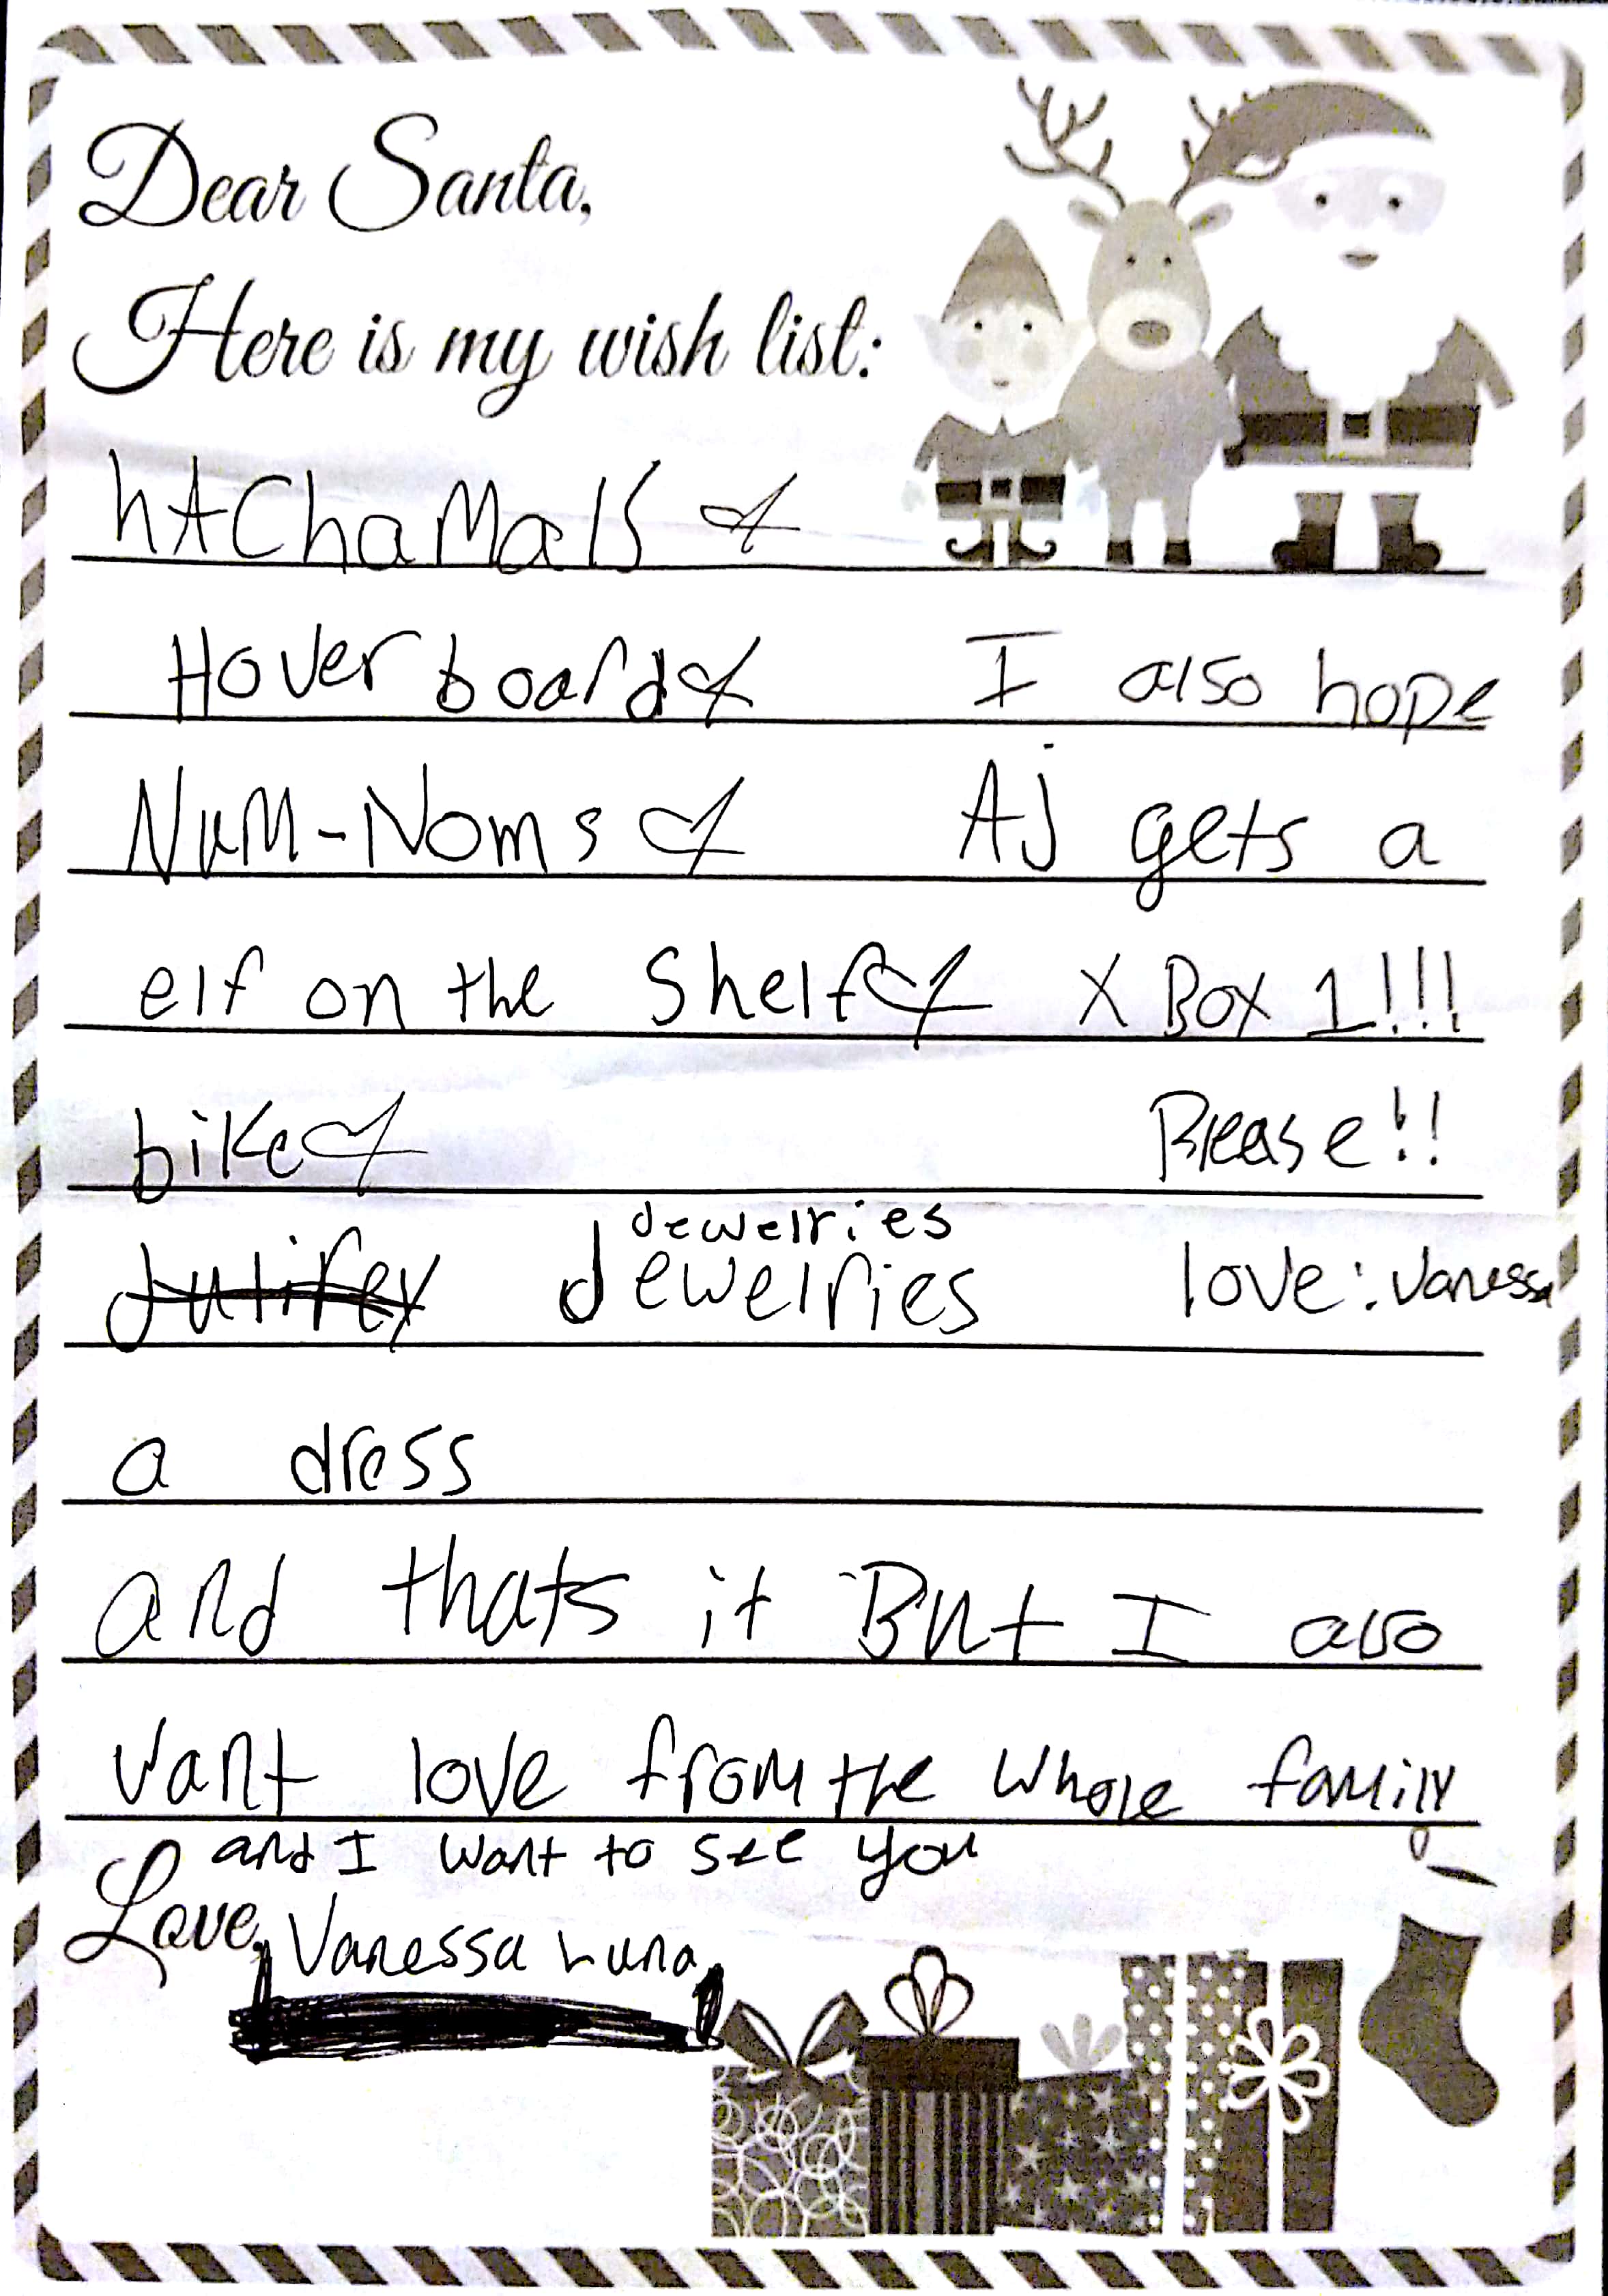 Dear Santa,
Here is my wish list:
htChaMals
Hover board I also hope
NuM-Noms AJ gets a
elf on the Shelf X Box 1!!!
bike Please!!
dewelries
dewelries love: Vanessa
a dress
and thats it But I also
vant love from the whole family
and I want to see you
Love, Vanessa Luna